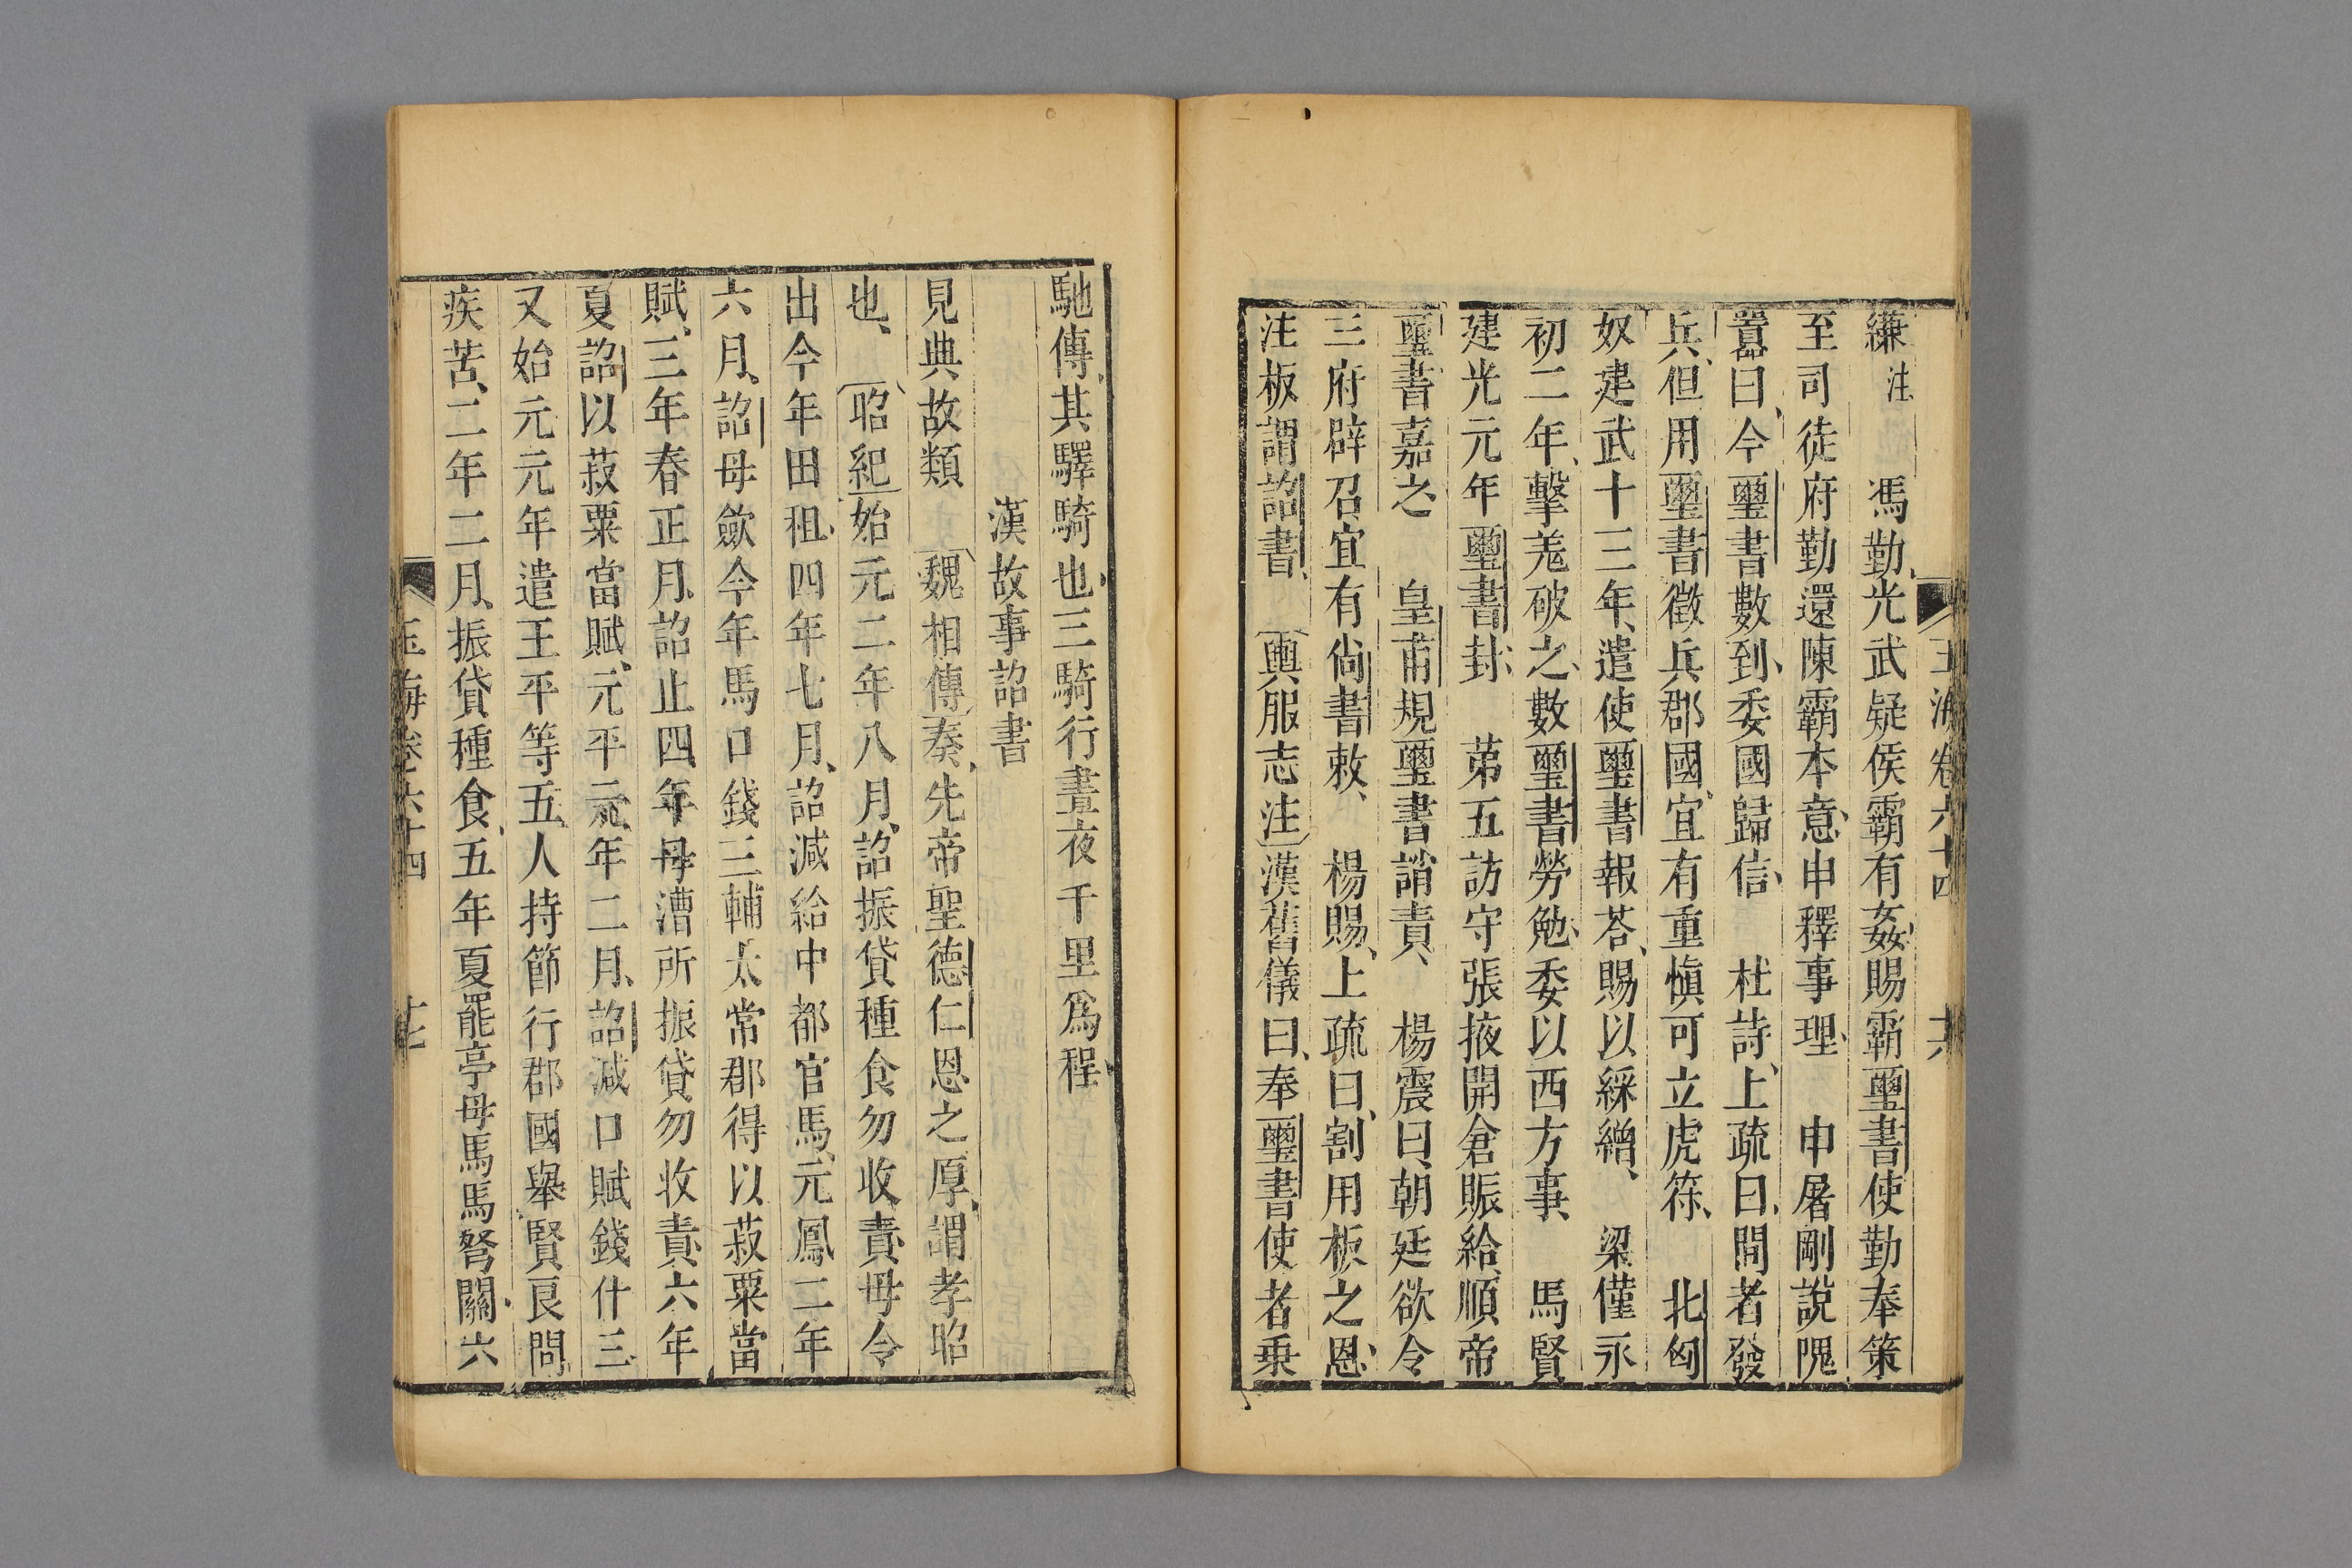 玉海卷六十四 十六
縑注 馮勤光武疑侯霸有姦賜霸璽書使勤奉策
至司徒府勤還陳霸本意申釋事理 申屠剛說隗
囂曰今璽書數到委國歸信 杜詩上疏曰間者發
兵但用璽書徵兵郡國宜有重愼可立虎符 北匈
奴建武十三年遣使璽書報荅賜以綵繒 梁慬永
初二年擊羗破之數璽書勞勉委以西方事 馬賢
建光元年璽書封 苐五訪守張掖開倉賑給順帝
璽書嘉之 皇甫規璽書誚責 楊震曰朝廷欲令
三府辟召宜有尚書敕 楊賜上疏曰割用板之恩
注板謂詔書 輿服志注漢舊儀曰奉璽書使者乗
馳傳其驛騎也三騎行晝夜千里爲程
漢故事詔書
見典故類 魏相傳奏先帝聖德仁恩之厚謂孝昭
也 昭紀始元二年八月詔振貸種食勿收責毋令
出今年田租四年七月詔減給中都官馬元鳳二年
六月詔毋斂今年馬口錢三輔太常郡得以菽粟當
賦三年春正月詔止四年毋漕所振貸勿收責六年
夏詔以菽粟當賦元平元年二月詔減口賦錢什三
又始元元年遣王平等五人持節行郡國舉賢良問
疾苦二年二月振貸種食五年夏罷亭母馬馬弩關六
玉海卷六十四 十七